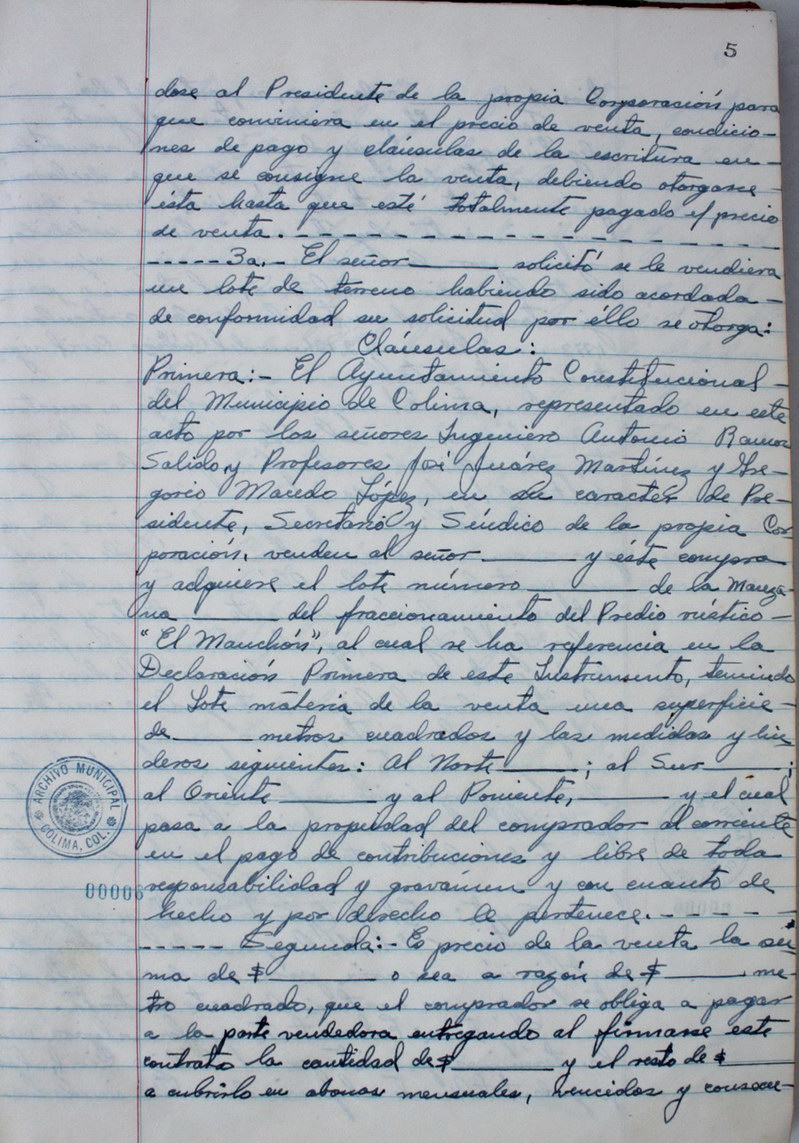 5
dose al Presidente de la propia Corporación para
que conviniera en el precio de venta, condicio-
nes de pago y cláusulas de la escritura en-
que se consigne la venta, debiendo otorgarse-
ésta hasta que esté totalmente pagado el precio
de venta.- - - - - - - - - - - - - - - - - -
-----3a.- El señor ______ solicitó se le vendiera
un lote de terreno habiendo sido acordada-
de conformidad su solicitud por éllo se otorga:
Cláusulas:
Primera:- El Ayuntamiento Constitucional-
del Municipio de Colima, representado en este
acto por los señores Ingeniero Antonio Ramos
Salido, y Profesores José Juárez Martínez y Gre-
gorio Macedo López, en su caracter de Pre-
sidente, Secretario y Síndico de la propia Cor-
poración, venden al señor ______ y éste compra
y adquiere el lote número ______ de la Manza-
na ______ del fraccionamiento del Predio rústico-
"El Manchón", al cual se ha referencia en la
Declaración Primera de este Instrumento, teniendo
el Lote materia de la venta una superficie-
de ______ metros cuadrados y las medidas y lin
deros siguientes: Al Norte ______; al Sur ______;
al Oriente ______ y al Poniente, ______ y el cual
pasa a la propiedad del comprador al corriente
en el pago de contribuciones y libre de toda
responsabilidad y gravámen y con cuanto de
hecho y por derecho le pertenece.- - - - -
----- Segunda:- Es precio de la venta la su
ma de $ ______ o sea a razón de $ ______ me-
tro cuadrado, que el comprador se obliga a pagar
a la parte vendedora entregando al firmarse este
contrato la cantidad de $ ______ y el resto de $ ______
a cubrirlo en abonos mensuales, vencidos y consecu-
ARCHIVO MUNICIPAL
COLIMA, COL.
00006